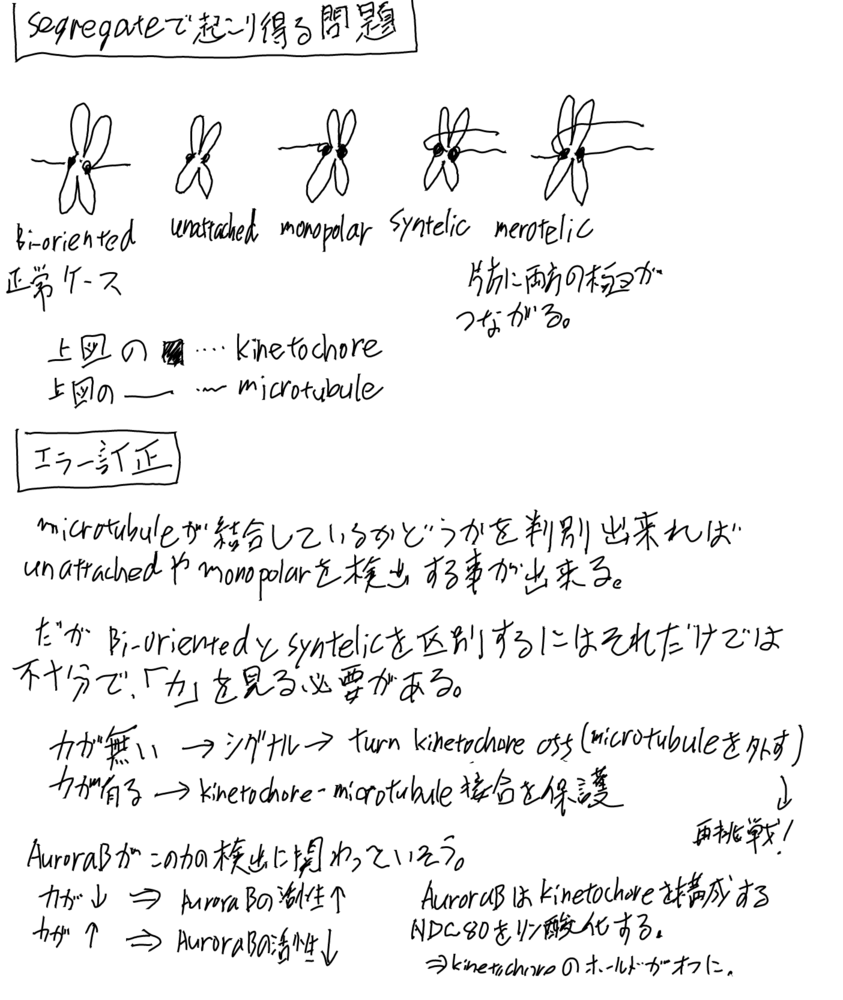 segregateで起こり得る問題
Bi-oriented unattached monopolar syntelic merotelic
正常ケース
片方に両方の極が
つながる。
上図の ■ … kinetochore
上図の ― … microtubule
エラー訂正
microtubuleが結合しているかどうかを判別出来れば
unattachedやmonopolarを検出する事が出来る。
だが Bi-orientedとsyntelicを区別するにはそれだけでは
不十分で、「力」を見る必要がある。
力が無い → シグナル → turn kinetochore off (microtubuleを外す)
力が有る → kinetochore-microtubule 接合を保護
↓
再挑戦!
AuroraBがこの力の検出に関わっていそう。
力が↓ ⇒ AuroraBの活性↑
力が↑ ⇒ AuroraBの活性↓
AuroraBはkinetochoreを構成する
NDC80をリン酸化する。
⇒kinetochoreのホールドがオフに。